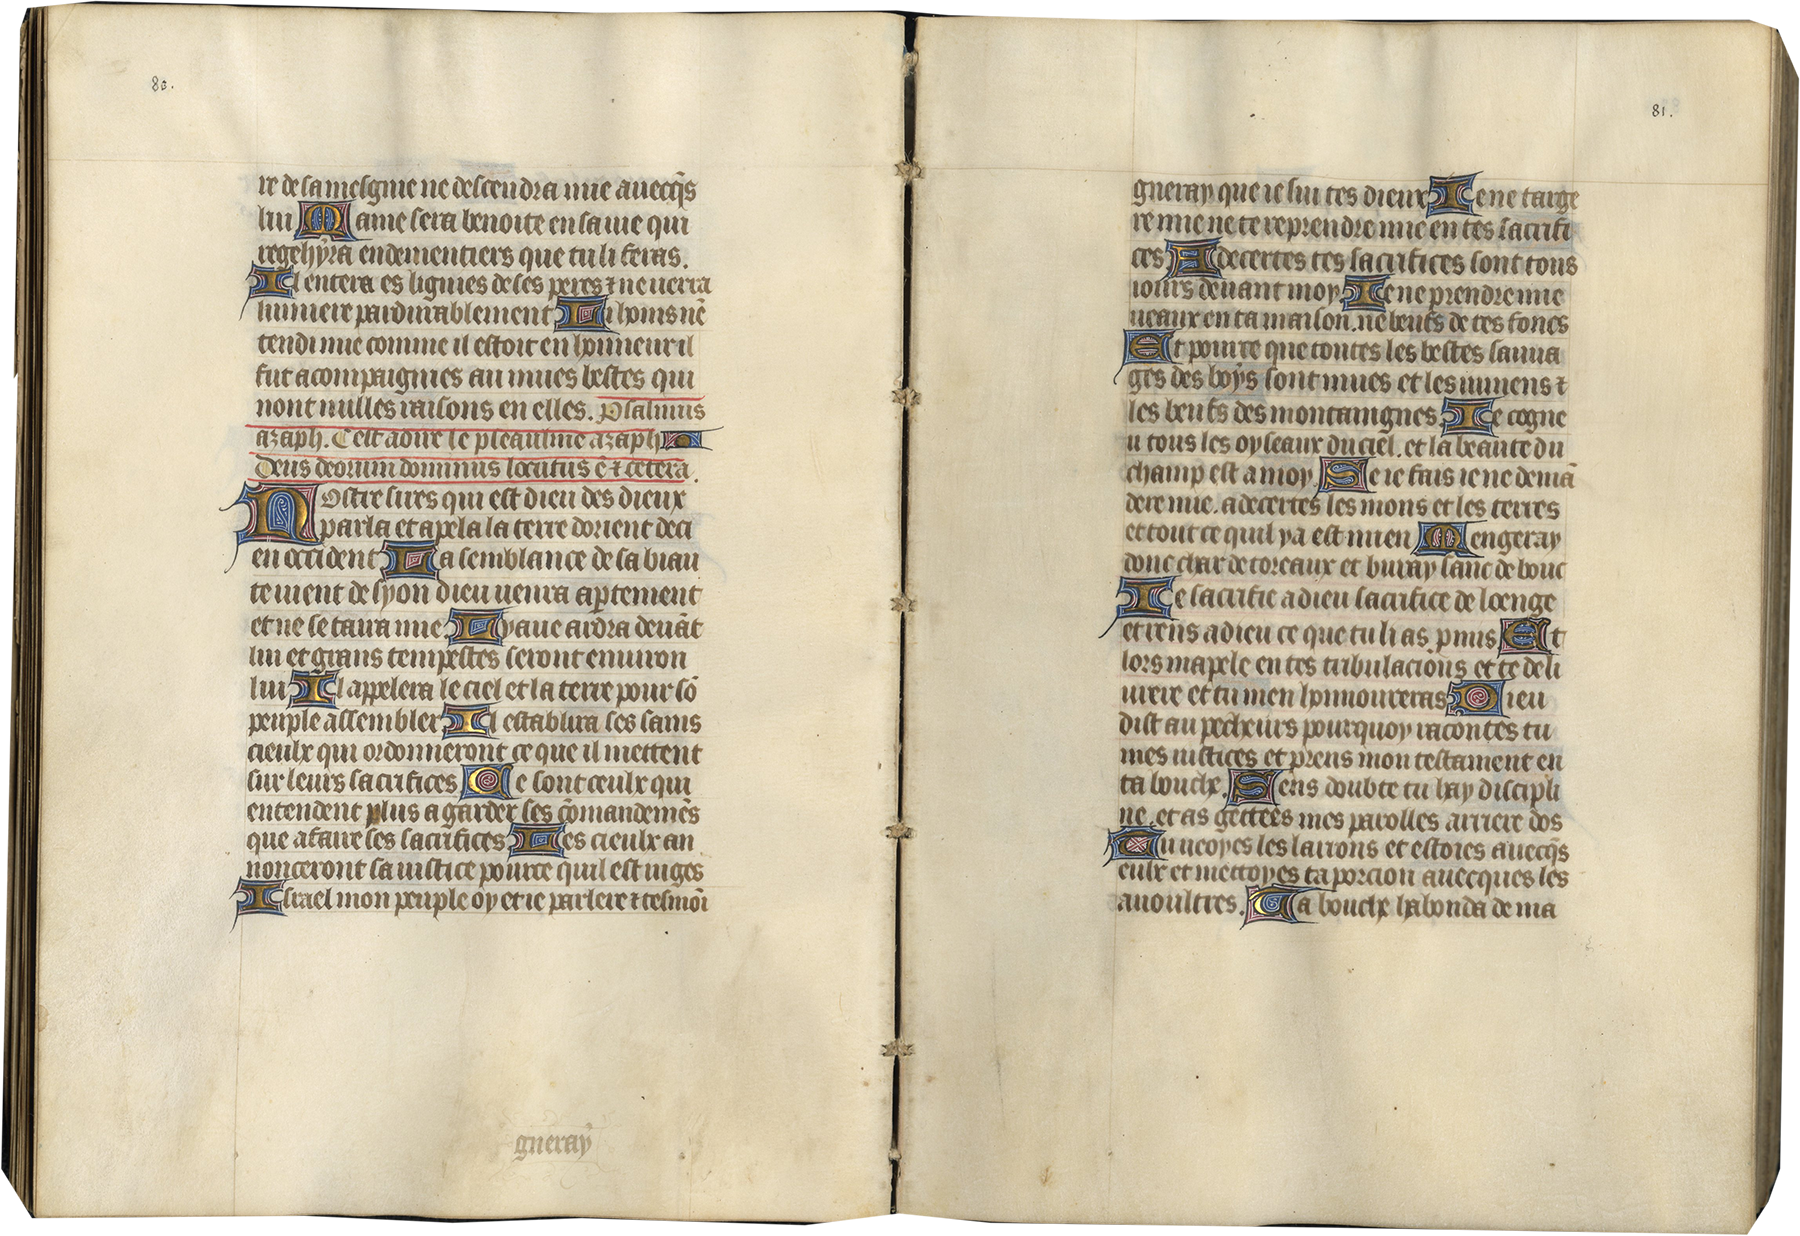 80.
re de sa mesgnie ne descendra mie avecq̃s
lui Mame sera benoite en sa vie qui
regehyra endementiers que tu li feras.
Il entera es lignies de ses peres ⁊ ne verra
lumiere pardurablement Li homs nẽ
tendi mie comme il estoit en honneur il
fut acompaignies au mues bestes qui
nont nulles raisons en elles. Psalmus
azaph. Cest adire le pseaulme azaph
Deus deorum dominus locutus ẽ ⁊ cetera.
Nostre sires qui est dieu des dieux
parla et apela la terre dorient deci
en occident La semblance de sa biau
te vient de syon dieu venra apertement
et ne se taira mie Fy aue ardra devãt
lui et grans tempestes seront environ
lui Il appelera le ciel et la terre pour sõ
peuple assembler Il establira ses sains
cieulx qui ordonneront ce que il mettent
sur leurs sacrifices Ce sont ceulx qui
entendent plus a garder ses cõmandemẽs
que a faire ses sacrifices Les cieulx an
nonceront sa iustice pource quil est iuges
Israel mon peuple oy et ie parlere ⁊ tesmoi
gueray
81.
gueray que ie sui tes dieux Ie ne targe
re mie ne te reprendre mie en tes sacrifi
ces Adecertes tes sacrifices sont tous
iours devant moy Ie ne prendre mie
veaux en ta maison. ne beufs de tes foncs
Et pource que toutes les bestes sauva
ges des boys sont mies et les iumens ⁊
les beufs des montaingnes Ie cogne
u tous les oyseaux du ciel. et la beaute du
champ est a moy Se ie fais ie ne demã
dere mie. adecertes les mons et les terres
et tout ce quil y a est mien Mengeray
donc char de toreaux et buray sanc de bouc
Ie sacrifie a dieu sacrifice de loenge
et rens a dieu ce que tu li as pmis Et
lors mapele en tes tribulacions et te deli
vrere et tu men honnourceras Dieu
dist au pecheurs pourquoy racontes tu
mes iustices et prens mon testament en
ta bouche. Sens doubte tu hay discipli
ne. et as gettees mes parolles arriere dos
Tu veoyes les larrons et estoies avecq̃s
eulx et mettoyes ta porcion avecques les
avoultres. Ta bouche habonda de ma